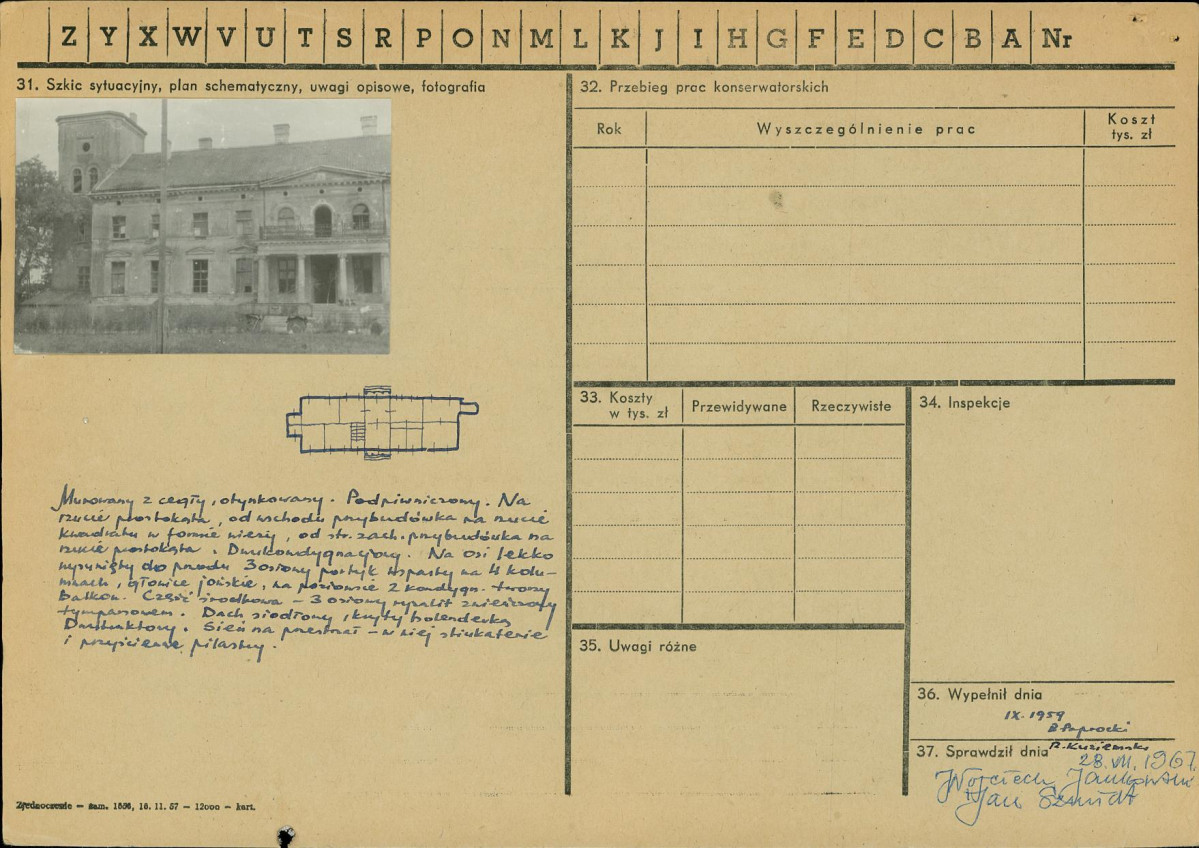 Z Y X W V U T S R P O N M L K J I H G F E D C B A Nr
31. Szkic sytuacyjny, plan schematyczny, uwagi opisowe, fotografia
Murowany z cegły, otynkowany. Podpiwniczony. Na
rzucie prostokąta, od wschodu przybudówka na rzucie
kwadratu w formie wieży, od str. zach. przybudówka na
rzucie prostokąta. Dwukondygnacyjny. Na osi lekko
wysunięty do przodu 3osiowy portyk wsparty na 4 kolu-
mnach, głowice jońskie, na poziomie 2 kondygn. tworzy
balkon. Część środkowa – 3 osiowy ryzalit zwieńczony
tympanonem. Dach siodłowy, kryty holenderką
Dwutraktowy. Sień na przestrzał – w niej stiukaterie
i przyścienne pilastry.
Zjednoczenie — zam. 1556, 18. 11. 57 — 12000 — kart.
32. Przebieg prac konserwatorskich
Rok
Wyszczególnienie prac
Koszt
tys. zł
33. Koszty
w tys. zł
Przewidywane
Rzeczywiste
34. Inspekcje
35. Uwagi różne
36. Wypełnił dnia
IX. 1959
B Paprocki
37. Sprawdził dnia
28. VII. 1967.
Wojciech Jankowski
Jan Szmidt